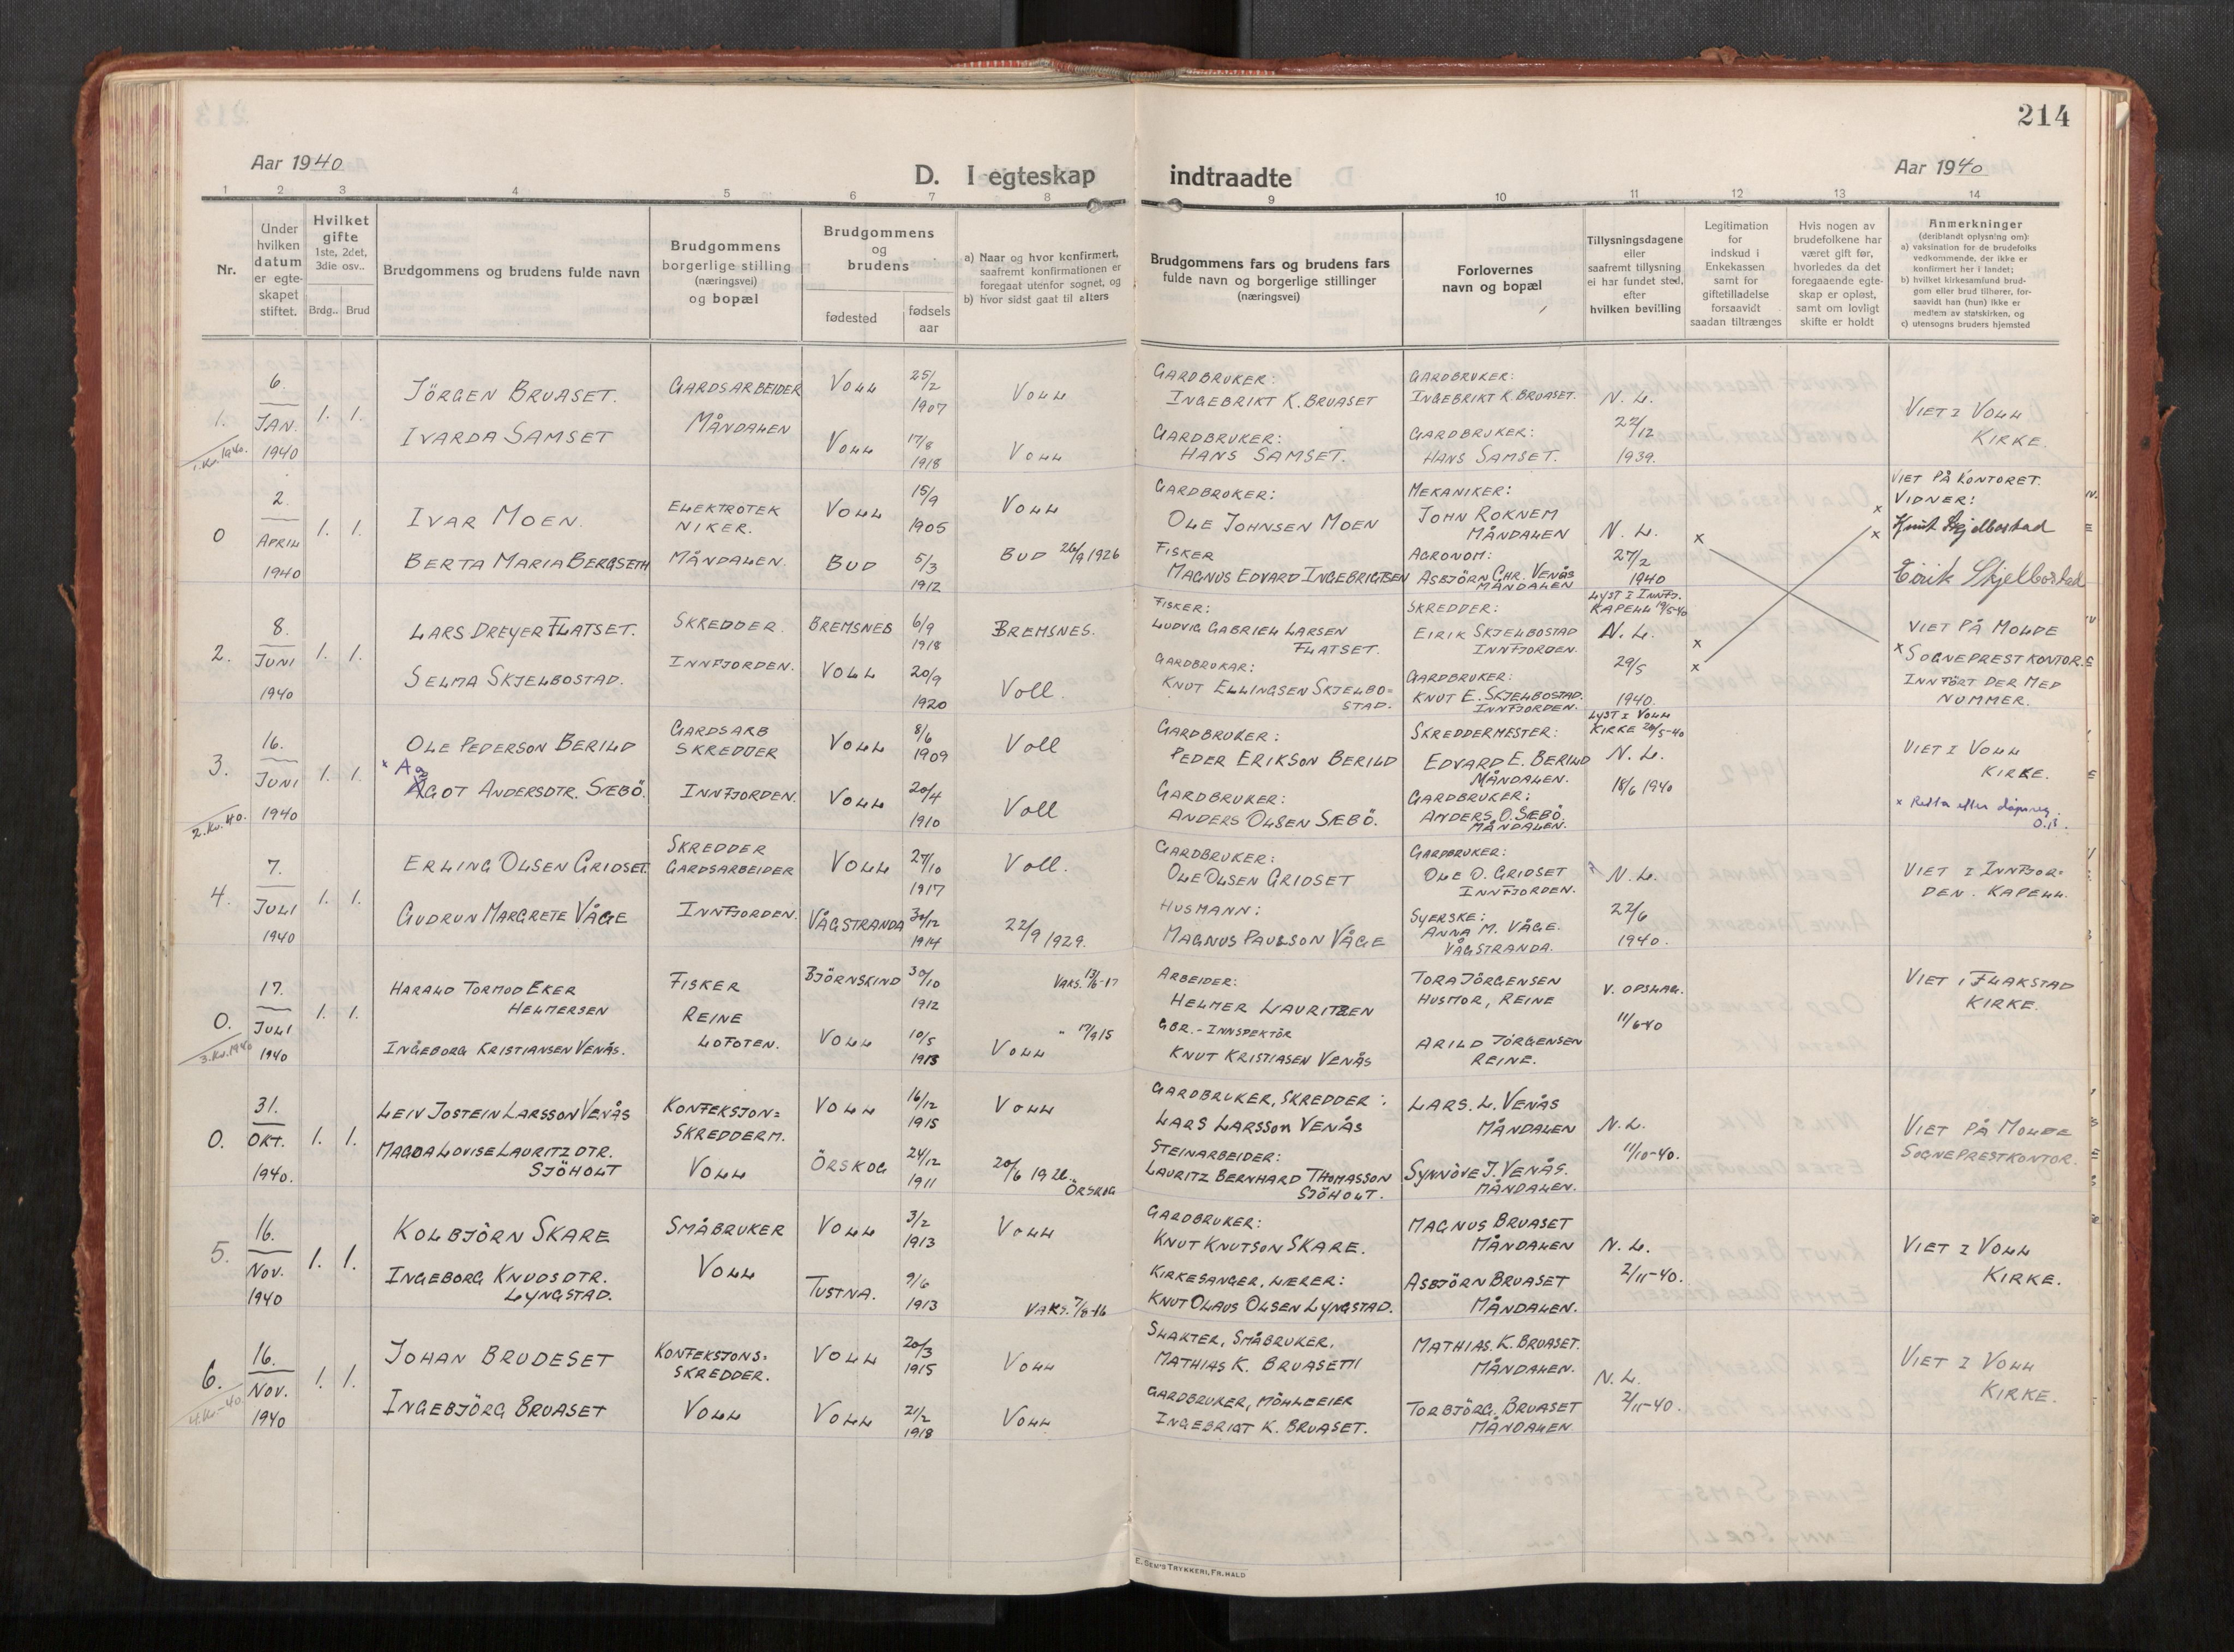 214
Aar 1940
D. I egteskap indtraadte
Aar 1940
1 2 3 4 5 6 7 8 9 10 11 12 13 14
Nr.
Under hvilken datum er egteskapet stiftet.
Hvilket gifte 1ste, 2det, 3die osv..
Brdg.. Brud
Brudgommens og brudens fulde navn
Brudgommens borgerlige stilling (næringsvei) og bopæl
Brudgommens og brudens
fødested
fødsels aar
a) Naar og hvor konfirmert, saafremt konfirmationen er foregaat utenfor sognet, og
b) hvor sidst gaat til alters
Brudgommens fars og brudens fars fulde navn og borgerlige stillinger (næringsvei)
Forlovernes navn og bopæl
Tillysningsdagene eller saafremt tillysning ei har fundet sted, efter hvilken bevilling
Legitimation for indskud i Enkekassen samt for giftetilladelse forsaavidt saadan tiltrænges
Hvis nogen av brudefolkene har været gift før, hvorledes da det foregaaende egteskap er opløst, samt om lovligt skifte er holdt
Anmerkninger
(deriblandt oplysning om):
a) vaksination for de brudefolks vedkommende, der ikke er konfirmert her i landet;
b) hvilket kirkesamfund brudgom eller brud tilhører, forsaavidt han (hun) ikke er medlem av statskirken, og
c) utensogns bruders hjemsted
1.
1.Kv.1940.
6. JAN. 1940
1. 1.
JÖRGEN BRUASET.
IVARDA SAMSET
GARDSARBEIDER
MÅNDALEN
VOLL 25/2 1907 VOLL
VOLL 17/8 1918 VOLL
GARDBRUKER:
INGEBRIKT K. BRUASET
GARDBRUKER:
HANS SAMSET.
GARDBRUKER:
INGEBRIKT K. BRUASET.
GARDBRUKER:
HANS SAMSET.
N. L.
22/12
1939.
VIET I VOLL
KIRKE.
0
2. APRIL 1940
1. 1.
IVAR MOEN.
BERTA MARIA BERGSETH
ELEKTROTEK
NIKER.
MÅNDALEN.
VOLL 15/9 1905 VOLL
BUD 5/3 1912 BUD 26/9 1926
GARDBRUKER:
OLE JOHNSEN MOEN
FISKER
MAGNUS EDVARD INGEBRIGTSEN
MEKANIKER:
JOHN ROKNEM
MÅNDALEN
AGRONOM:
ASBJÖRN CHR. VENÅS
MÅNDALEN
N. L.
27/2
1940
x
VIET PÅ KONTORET.
VIDNER:
x
x Knut Skjelbostad
Eirik Skjelbostad
2.
8. JUNI 1940
1. 1.
LARS DREYER FLATSET.
SELMA SKJELBOSTAD.
SKREDDER
INNFJORDEN.
BREMSNES 6/9 1918 BREMSNES.
VOLL 20/9 1920 Voll.
FISKER:
LUDVIG GABRIEL LARSEN
FLATSET.
GARDBRUKAR:
KNUT ELLINGSEN SKJELBO=
STAD.
SKREDDER:
EIRIK SKJELBOSTAD
INNFJORDEN.
GARDBRUKER:
KNUT E. SKJELBOSTAD.
INNFJORDEN.
LYST I INNFJ.
KAPELL 19/5-40
N. L.
29/5
1940.
x
x
VIET PÅ MOLDE
x SOGNEPRESTKONTOR.
INNFÖRT DER MED
NUMMER.
3.
2. Kv. 40.
16. JUNI 1940
1. 1.
OLE PEDERSON BERILD
x Ag
AGOT ANDERSDTR. SÆBÖ.
GARDSARB
SKREDDER
INNFJORDEN.
VOLL 8/6 1909 Voll
VOLL 20/4 1910 Voll
GARDBRUKER:
PEDER ERIKSON BERILD
GARDBRUKER:
ANDERS OLSEN SÆBÖ.
SKREDDERMESTER:
EDVARD E. BERILD
MÅNDALEN.
GARDBRUKER:
ANDERS O. SÆBÖ.
MÅNDALEN.
LYST I VOLL
KIRKE 26/5-40
N. L.
18/6 1940
VIET I VOLL
KIRKE.
x Retta efter dåpsreg.
O.B.
4.
7. JULI 1940
1. 1.
ERLING OLSEN GRIDSET.
GUDRUN MARGRETE VÅGE
SKREDDER
GARDSARBEIDER
INNFJORDEN.
VOLL 27/10 1917 Voll.
VÅGSTRANDA 30/12 1914 22/9 1929.
GARDBRUKER:
OLE OLSEN GRIDSET
HUSMANN:
MAGNUS PAULSON VÅGE
GARDBRUKER:
OLE O. GRIDSET
INNFJORDEN.
SYERSKE:
ANNA M. VÅGE.
VÅGSTRANDA.
N. L.
22/6
1940.
VIET I INNFJOR=
DEN. KAPELL.
0.
3. Kv. 1940
17. JULI 1940
1. 1.
HARALD TORMOD EKER
HELMERSEN
INGEBORG KRISTIANSEN VENÅS.
FISKER
REINE
LOFOTEN.
BJÖRNSKIND 30/10 1912 VAKS. 13/6-17
VOLL 10/5 1913 VOLL " 17/9 15
ARBEIDER:
HELMER LAURITZEN
GBR.-INNSPEKTÖR
KNUT KRISTIASEN VENÅS
TORA JÖRGENSEN
HUSMOR, REINE
ARILD JÖRGENSEN
REINE.
V. OPSLAG.
11/6-40
VIET I FLAKSTAD
KIRKE.
0.
31. OKT. 1940.
1. 1.
LEIV JOSTEIN LARSSON VENÅS
MAGDA LOVISE LAURITZ DTR.
SJÖHOLT
KONFEKSJON=
SKREDDERM.
VOLL
VOLL 16/12 1915 VOLL
ÖRSKOG 24/12 1911 20/6 1926.
ÖRSKOG
GARDBRUKER, SKREDDER:
LARS LARSSON VENÅS
STEINARBEIDER:
LAURITZ BERNHARD THOMASSON
SJÖHOLT.
LARS. L. VENÅS
MÅNDALEN
SYNNÖVE J. VENÅS.
MÅNDALEN.
N. L.
11/10-40.
VIET PÅ MOLDE
SOGNEPRESTKONTOR.
5.
16. NOV. 1940
1. 1.
KOLBJÖRN SKARE
INGEBORG KNUDSDTR.
LYNGSTAD.
SMÅBRUKER
VOLL
VOLL 3/2 1913 VOLL
TUSTNA. 9/6 1913 VAKS. 7/8-16
GARDBRUKER:
KNUT KNUTSON SKARE.
KIRKESANGER, LÆRER:
KNUT OLAUS OLSEN LYNGSTAD.
MAGNUS BRUASET
MÅNDALEN
ASBJÖRN BRUASET
MÅNDALEN.
N. L.
2/11-40.
VIET I VOLL
KIRKE.
6.
4.Kv-40
16. NOV. 1940
1. 1.
JOHAN BRUDESET
INGEBJÖRG BRUASET
KONFEKSJONS=
SKREDDER.
VOLL
VOLL 20/3 1915 VOLL
VOLL 21/2 1918 VOLL
SLAKTER, SMÅBRUKER,
MATHIAS K. BRUASET
GARDBRUKER, MÖLLEEIER
INGEBRIGT K. BRUASET.
MATHIAS. K. BRUASET.
MÅNDALEN.
TORBJÖRG. BRUASET
MÅNDALEN
N. L.
2/11-40.
VIET I VOLL
KIRKE.
TRYKKERI, FR. HALD